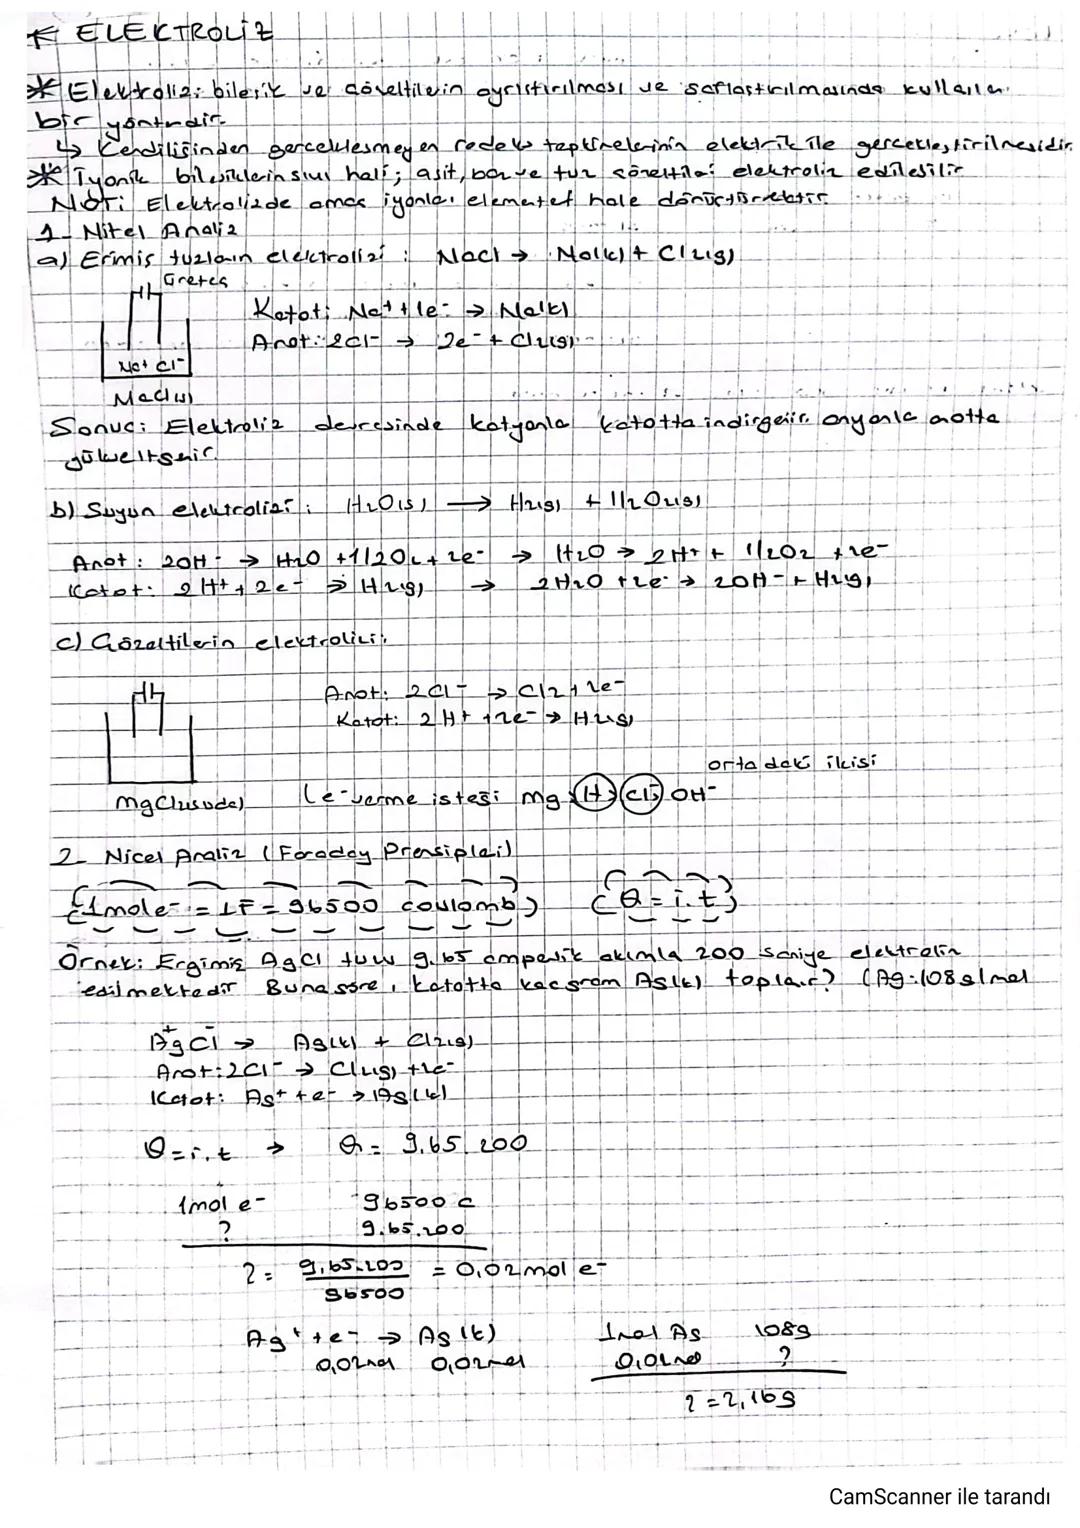 * ELEKTROLİZ
* Elektroliz: bileşik ve çözeltilerin ayrıştırılması ve saflaştırılmasında kullanılan
bir yöntemdir.
↳ Kendiliğinden gerçekleşmeyen redoks tepkimelerinin elektrik ile gerçekleştirilmesidir.
* İyonik bileşiklerin sıvı hali; asit, baz ve tuz çözeltileri elektroliz edilebilir
NOT: Elektrolizde amaç iyonları elementel hale dönüştürmektir.
1- Nitel Analiz
a) Erimiş tuzların elektrolizi : NaCl → Na(k) + Cl2(g)
Üreteç
Katot: Na+ + 1e- → Na(k)
Anot: 2Cl- → 2e- + Cl2(g)
Na+ Cl-
NaCl(s)
Sonuç: Elektroliz devresinde katyonlar katotta indirgenir, anyonlar anotta
yükseltgenir.
b) Suyun elektrolizi : H2O(s) → H2(g) + 1/2O2(g)
Anot : 2OH- → H2O + 1/2O2 + 2e- → H2O → 2H+ + 1/2O2 + 2e-
Katot: 2H+ + 2e- → H2(g) → 2H2O + 2e- → 2OH- + H2(g)
c) Çözeltilerin elektrolizi:
Anot: 2Cl- → Cl2 + 2e-
Katot: 2H+ + 2e- → H2(g)
ortadaki ikisi
MgCl2(suda) (e- verme isteği Mg > H > Cl- > OH-
2- Nicel Analiz (Faraday Prensipleri)
(1 mol e- = 1F = 96500 coulomb) (Q = i.t)
Örnek: Ergimiş AgCl tuzu 9.65 amperlik akımla 200 saniye elektroliz
edilmektedir Buna göre, katotta kaç gram Ag(k) toplanır? (Ag:108 g/mol
Ag+Cl- → Ag(k) + Cl2(g)
Anot: 2Cl- → Cl2(g) + 2e-
Katot: Ag+ + e- → Ag(k)
Q = i.t → Q = 9.65.200
1 mol e- 96500 C
? 9.65.200
? = 9.65.200 / 96500 = 0,02 mol e-
Ag+ + e- → Ag(k) 1 mol Ag 108g
0,02mol 0,02mol 0,02mol ?
? = 2,16g
CamScanner ile tarandı